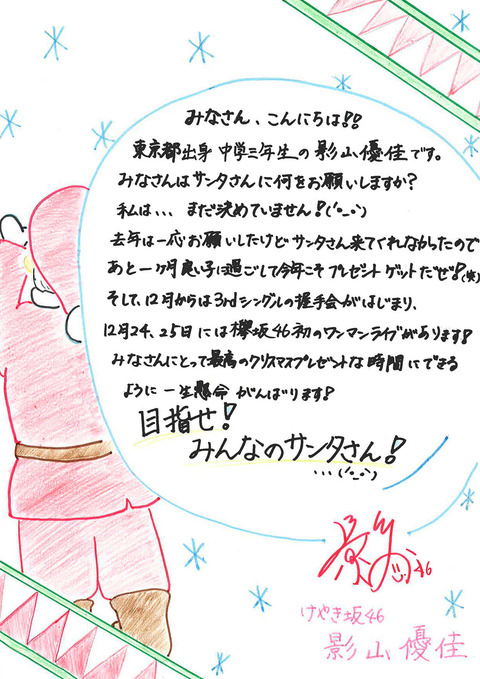 みなさん、こんにちは!!
東京都出身 中学三年生の影山優佳です。
みなさんはサンタさんに何をお願いしますか?
私は、、、まだ決めていません!('◦_◦`)
去年は一応お願いしたけどサンタさん来てくれなかったので
あと一ヶ月良い子に過ごして今年こそプレゼントゲットだぜ!(笑)
そして、12月からは3rdシングルの握手会がはじまり、
12月24、25日には欅坂46初のワンマンライブがあります!
みなさんにとって最高のクリスマスプレゼントな時間にできる
ように一生懸命がんばります!
目指せ!
みんなのサンタさん!
...('◦_◦`)
影山
46
けやき坂46
影山優佳